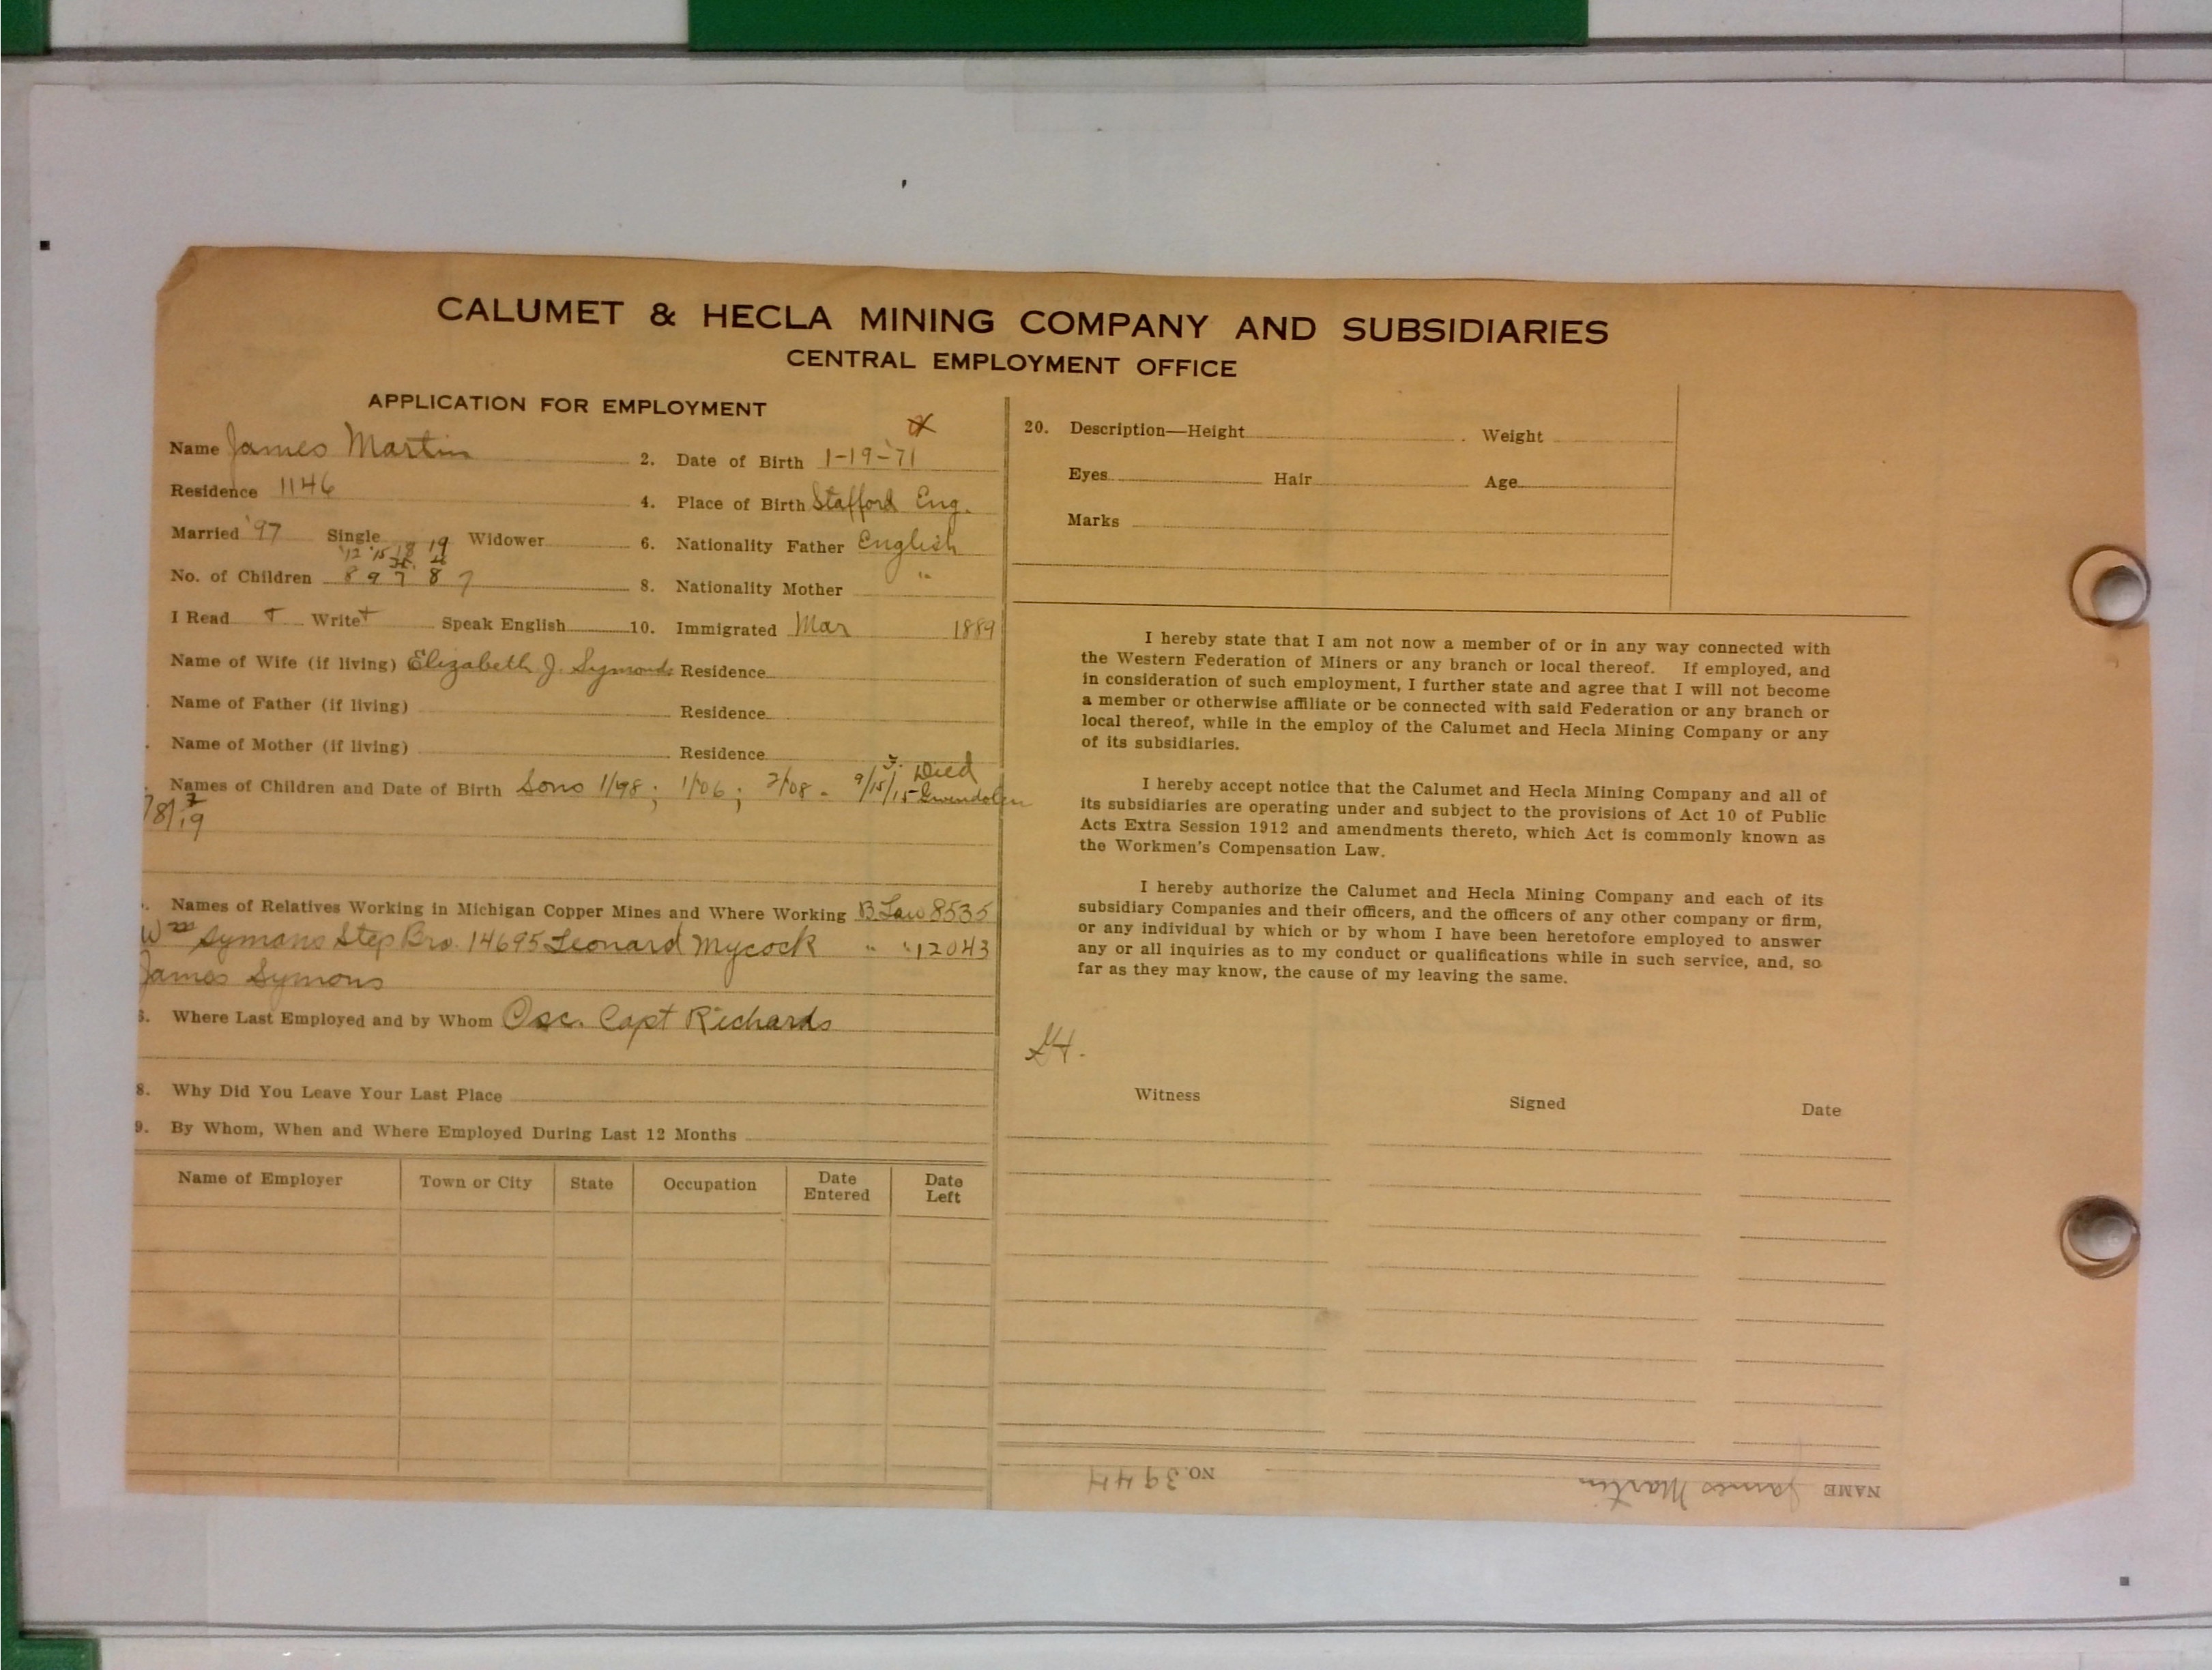 CALUMET & HECLA MINING COMPANY AND SUBSIDIARIES
CENTRAL EMPLOYMENT OFFICE
APPLICATION FOR EMPLOYMENT
Name James Martin 2. Date of Birth 1-19-'71
Residence 1146 4. Place of Birth Stafford Eng.
Married '97 Single Widower 6. Nationality Father English
'12 '15 18 19
No. of Children 8 9 7 8 7 8. Nationality Mother "
I Read Write Speak English 10. Immigrated Mar 1889
Name of Wife (if living) Elizabeth J. Symonds Residence
Name of Father (if living) Residence
Name of Mother (if living) Residence
Died
Names of Children and Date of Birth Sons 1/98; 1/06; 2/08 - 9/15/15 Gwendolen
Names of Relatives Working in Michigan Copper Mines and Where Working B Law 8535
Wm Symons Step Bro. 14695 Leonard Mycock " " 12043
James Symons
Where Last Employed and by Whom Osc. Capt Richards
8. Why Did You Leave Your Last Place
9. By Whom, When and Where Employed During Last 12 Months
Name of Employer Town or City State Occupation Date Entered Date Left
20. Description—Height Weight
Eyes Hair Age
Marks
I hereby state that I am not now a member of or in any way connected with
the Western Federation of Miners or any branch or local thereof. If employed, and
in consideration of such employment, I further state and agree that I will not become
a member or otherwise affiliate or be connected with said Federation or any branch or
local thereof, while in the employ of the Calumet and Hecla Mining Company or any
of its subsidiaries.
I hereby accept notice that the Calumet and Hecla Mining Company and all of
its subsidiaries are operating under and subject to the provisions of Act 10 of Public
Acts Extra Session 1912 and amendments thereto, which Act is commonly known as
the Workmen's Compensation Law.
I hereby authorize the Calumet and Hecla Mining Company and each of its
subsidiary Companies and their officers, and the officers of any other company or firm,
or any individual by which or by whom I have been heretofore employed to answer
any or all inquiries as to my conduct or qualifications while in such service, and, so
far as they may know, the cause of my leaving the same.
Witness Signed Date
NAME James Martin NO. 3944